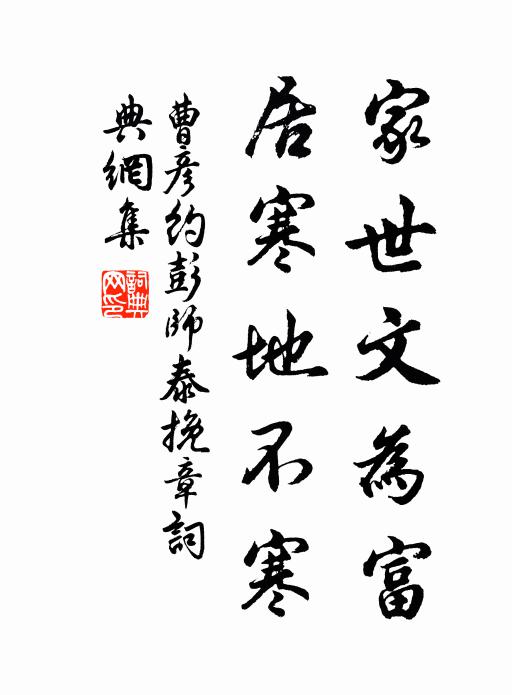 家世文為富
居寒地不寒
曹彦約彭師泰挽章詞
典網集
詞典網印